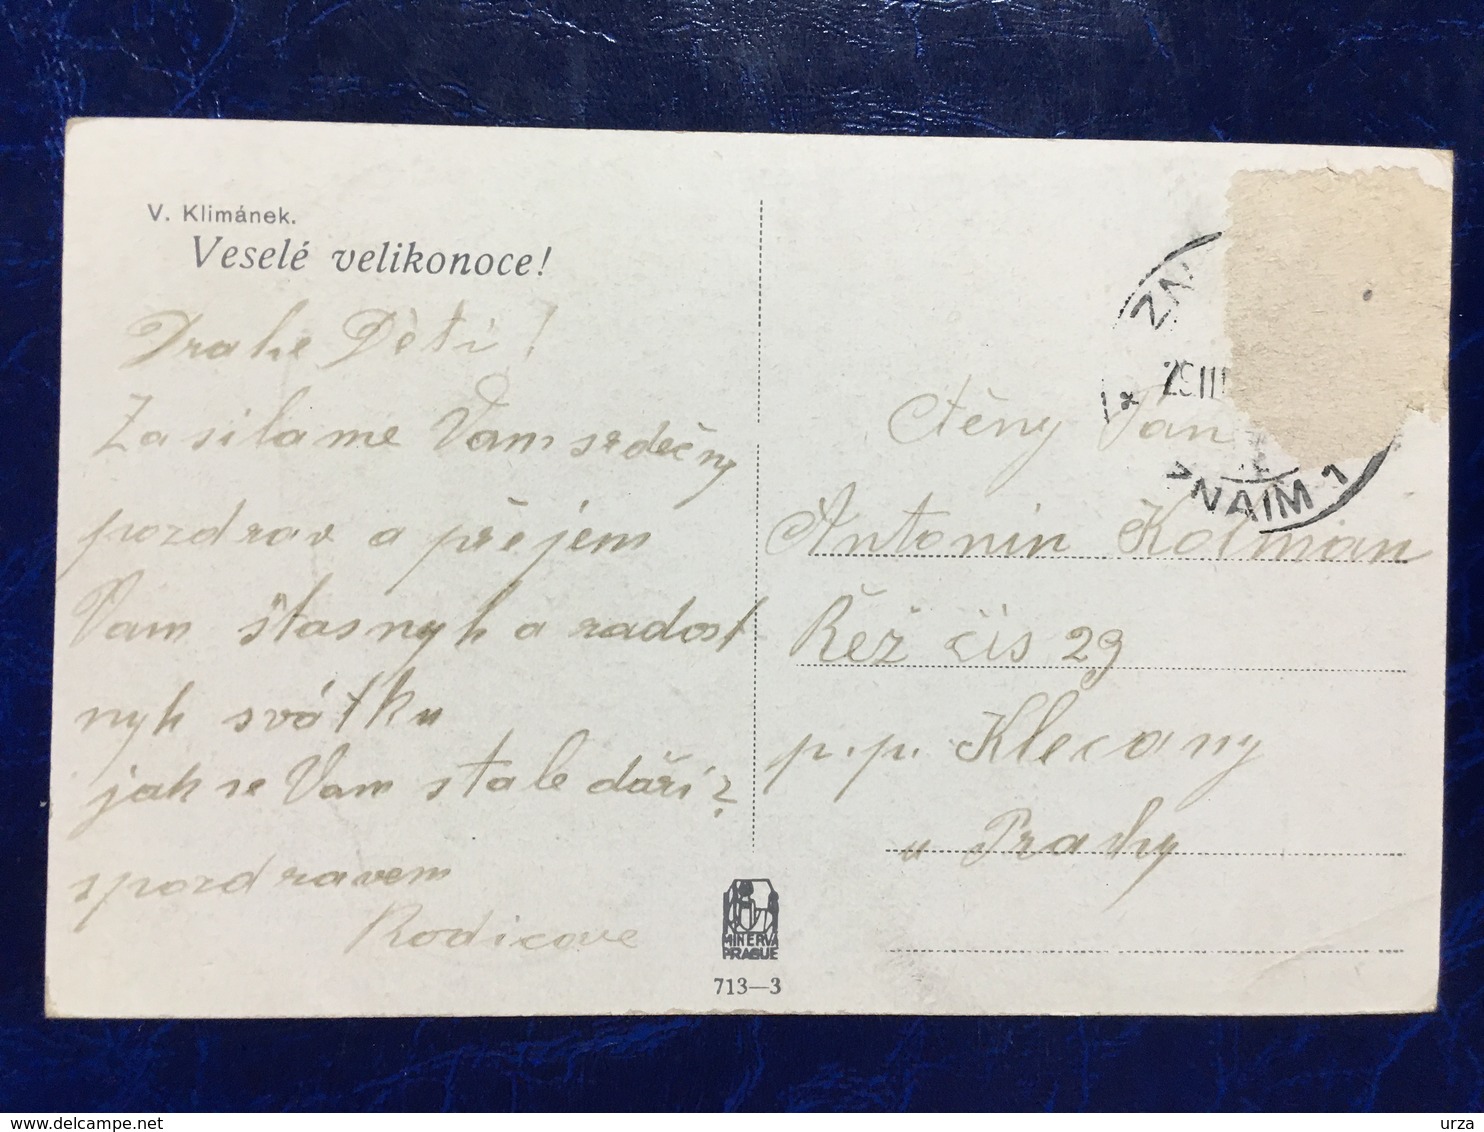 V. Klimánek.
Veselé velikonoce!
Drahe Děti!
Zasilame Vam srdečny
pozdrav a přejem
Vam štasnyh a radost
nyh svátku
jak se Vam stale daři?
s pozdravem
Rodicove
ZN
25 III
ZNAIM 1
Ctěny Pan
Antonin Kolman
Řež čis 29
p.p. Klecany
u Prahy
MINERVA
PRAGUE
713—3
delcampe.net
urza